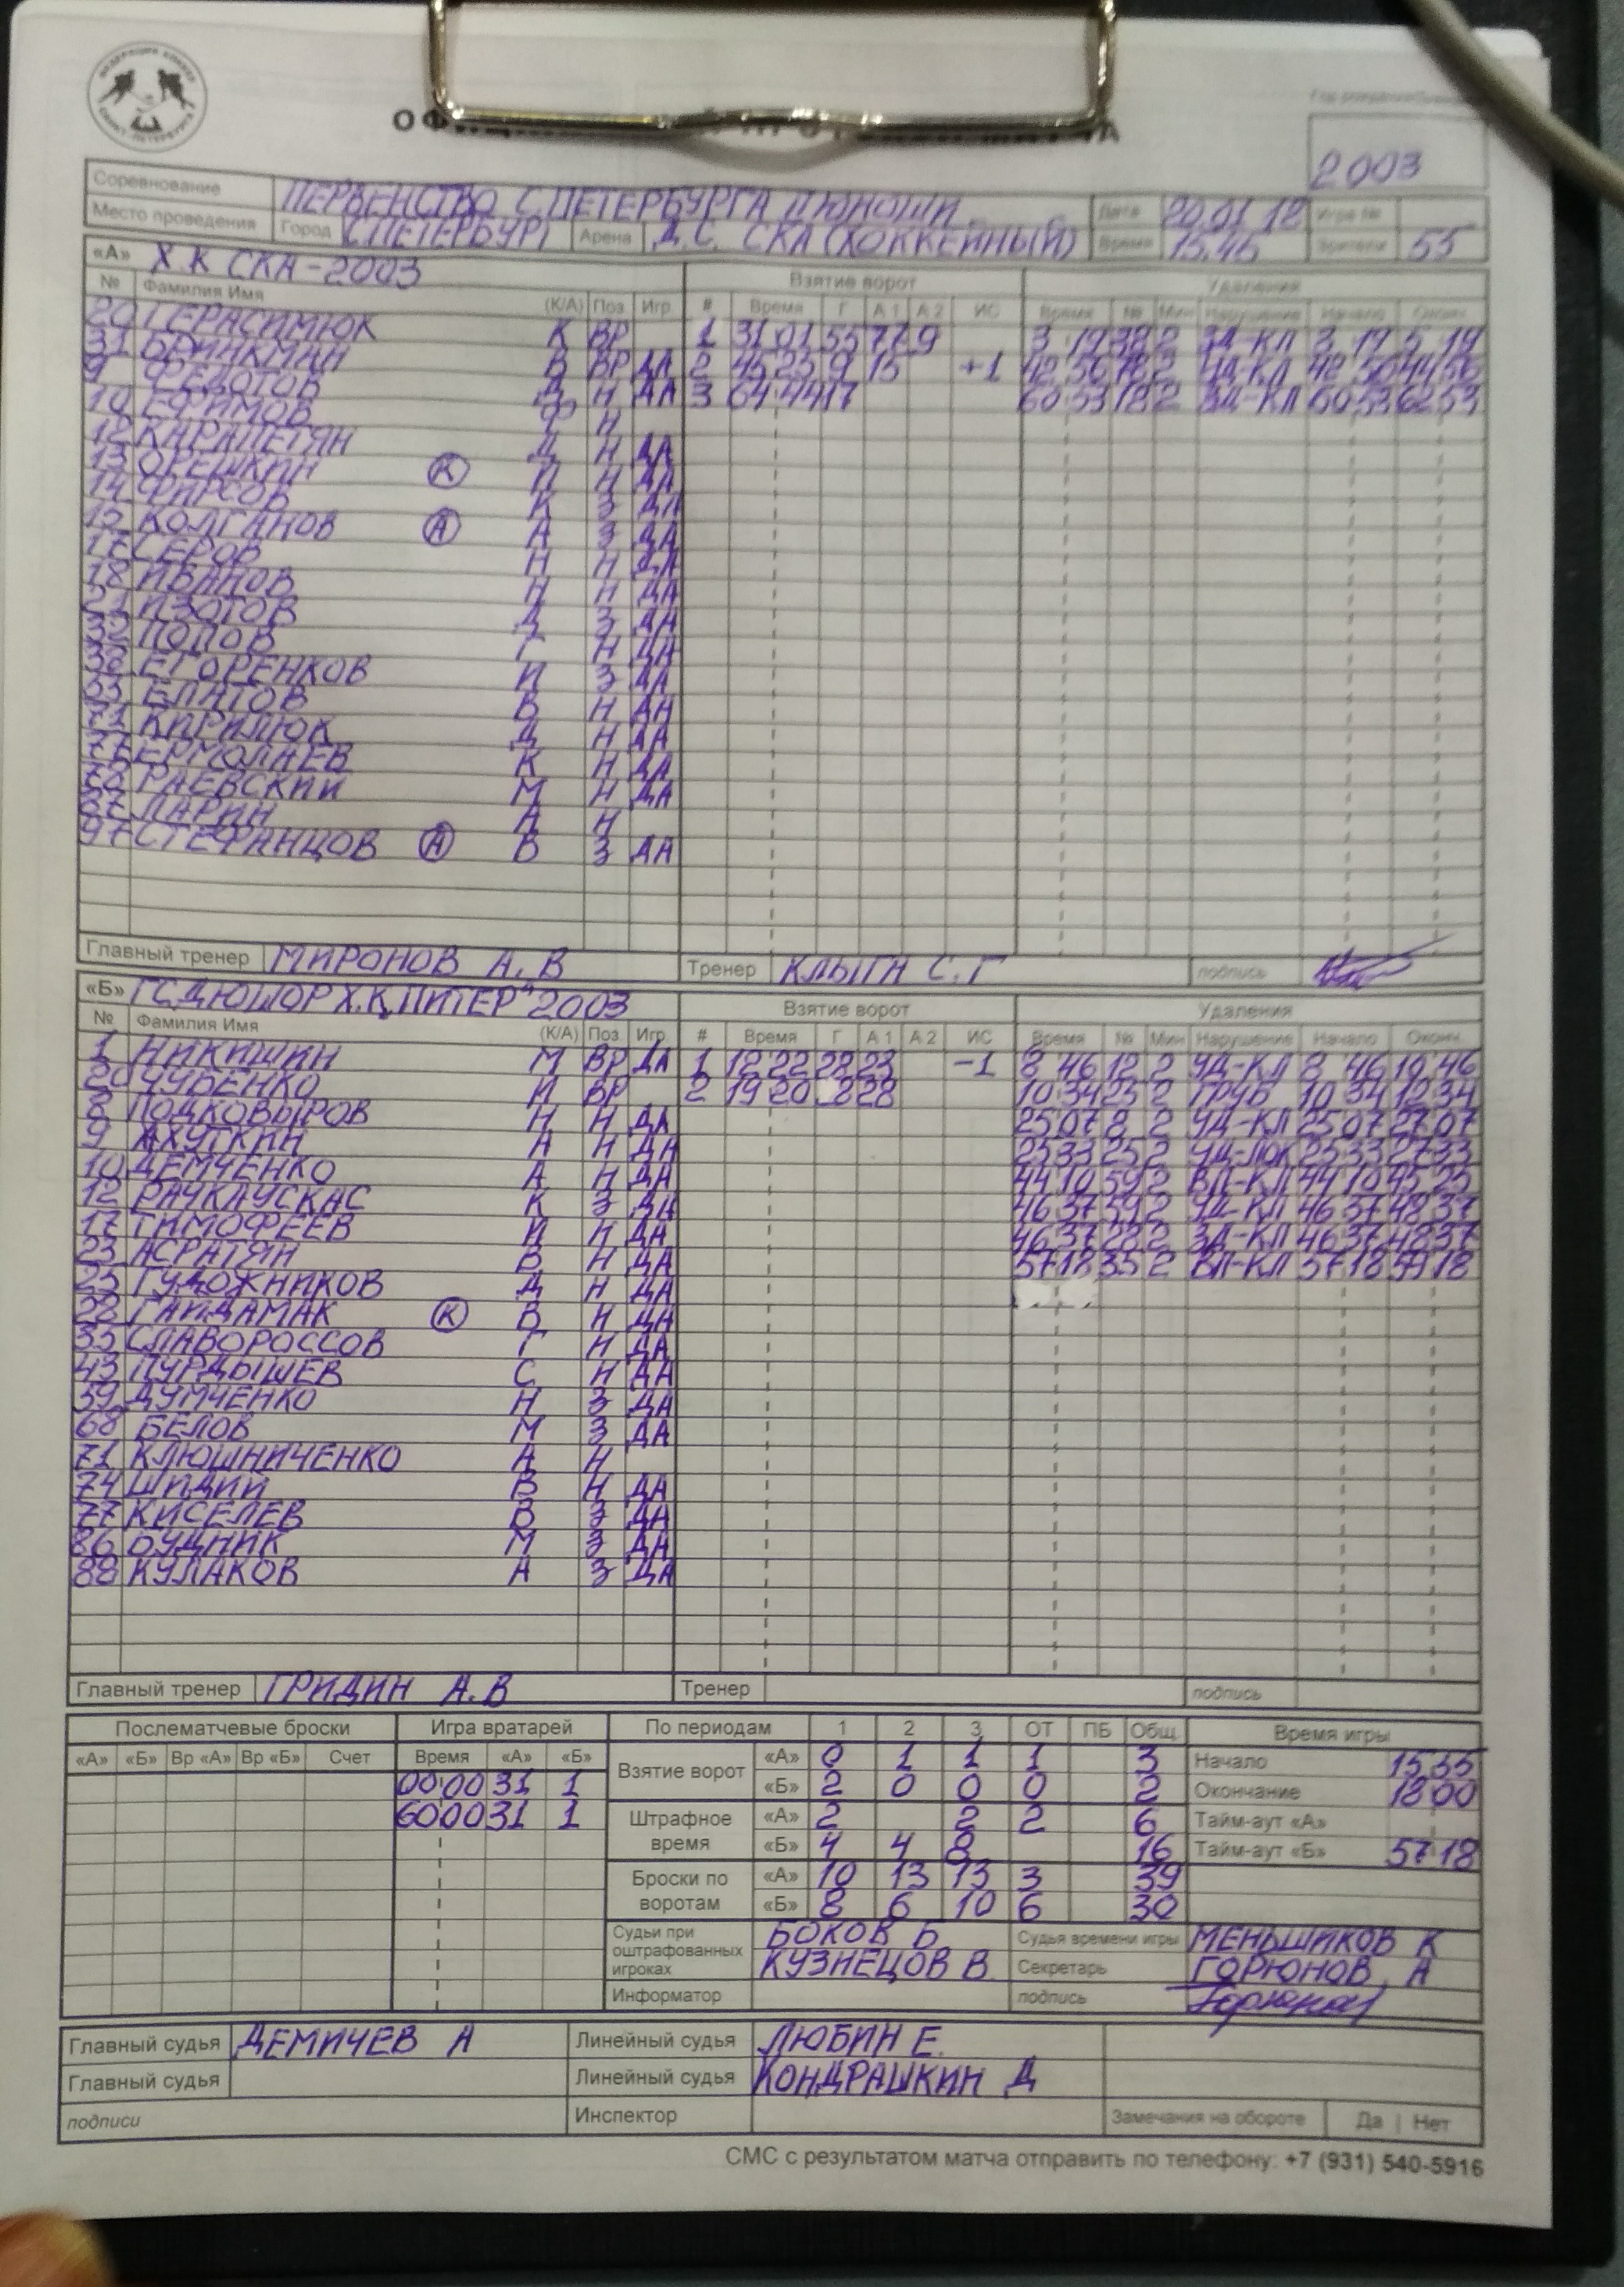 2003
Соревнование ПЕРВЕНСТВО С.ПЕТЕРБУРГА ЮНОШИ Дата 20.01.18 Игра №
Место проведения Город С.ПЕТЕРБУРГ Арена Д.С. СКА (ХОККЕЙНЫЙ) Время 15.45 Зрители 55
«А» Х.К СКА-2003 Взятие ворот Удаления
№ Фамилия Имя (К/А) Поз Игр # Время Г А 1 А 2 ИС Время № Мин Нарушение Начало Оконч.
20 ГЕРАСИМЮК К ВР 1 31 01 55 77 9 3 19 38 2 ЗД-КЛ 3 19 5 19
31 БРИНКМАН В ВР ДА 2 45 25 9 15 +1 42 56 78 2 УД-КЛ 42 56 44 56
9 ФЕДОТОВ Д Н ДА 3 64 44 17 60 53 18 2 ЗД-КЛ 60 53 62 53
10 ЕФИМОВ Ф Н
12 КАРАПЕТЯН Д Н ДА
13 ОРЕШКИН К И Н ДА
14 ФИРСОВ К З ДА
15 КОЛГАНОВ А А З ДА
17 СЕРОВ Н Н ДА
18 ИВАНОВ Н Н ДА
21 ИЗОТОВ Д З ДА
32 ПОПОВ Г Н ДА
38 ЕГОРЕНКОВ И З ДА
55 ЕЛАТОВ В Н ДА
71 КИРИЛЮК Д Н ДА
77 ЕРМОЛАЕВ К Н ДА
78 РАЕВСКИЙ М Н ДА
87 ЛАРИН А Н
97 СТЕФАНЦОВ А В З ДА
Главный тренер МИРОНОВ А. В Тренер КЛЫГН С. Г подпись
«Б» ГСДЮШОР Х.К „ПИТЕР" 2003 Взятие ворот Удаления
№ Фамилия Имя (К/А) Поз Игр # Время Г А 1 А 2 ИС Время № Мин Нарушение Начало Оконч.
1 НИКИШИН М ВР ДА 1 12 22 28 23 -1 8 46 12 2 УД-КЛ 8 46 10 46
20 ЧУБЕНКО И ВР 2 19 20 8 28 10 34 25 2 ГРУБ 10 34 12 34
8 ПОДКОВЫРОВ Н Н ДА 25 07 8 2 УД-КЛ 25 07 27 07
9 АХУТКИН Н Н ДА 25 33 25 2 УД-ЛОК 25 33 27 33
10 ДЕМЧЕНКО А Н ДА 44 10 59 2 ВП-КЛ 44 10 45 25
12 РАЧКАУСКАС К З ДА 46 37 59 2 УД-КЛ 46 37 48 37
17 ТИМОФЕЕВ И Н ДА 46 37 28 2 ЗД-КЛ 46 37 48 37
23 АСРАТЯН В Н ДА 57 18 35 2 ВП-КЛ 57 18 59 18
25 ГУДОЖНИКОВ Д Н ДА
28 ГАЙДАМАК К В Н ДА
35 СЛАВОРОССОВ Г Н ДА
43 ПУРДЫШЕВ С Н ДА
59 ДУМЧЕНКО Н З ДА
68 БЕЛОВ М З ДА
71 КЛЮШНИЧЕНКО А Н
74 ШИДИЙ В Н ДА
77 КИСЕЛЕВ В З ДА
86 БУДНИК М З ДА
88 КУЛАКОВ А З ДА
Главный тренер ГРИДИН А.В Тренер подпись
Послематчевые броски Игра вратарей По периодам 1 2 3 ОТ ПБ Общ. Время игры
«А» «Б» Вр «А» Вр «Б» Счет Время «А» «Б»
Взятие ворот «А» 0 1 1 1 3 Начало 15 55
00 00 31 1 «Б» 2 0 0 0 2 Окончание 18 00
60 00 31 1 Штрафное время «А» 2 2 2 6 Тайм-аут «А»
«Б» 4 4 8 16 Тайм-аут «Б» 57 18
Броски по воротам «А» 10 13 13 3 39
«Б» 8 6 10 6 30
Судьи при оштрафованных игроках БОКОВ Б Судья времени игры МЕНЬШИКОВ К
КУЗНЕЦОВ В. Секретарь ГОРЮНОВ А
Информатор подпись
Главный судья ДЕМИЧЕВ А Линейный судья ЛЮБИН Е.
Главный судья Линейный судья КОНДРАШКИН Д
подписи Инспектор Замечания на обороте Да | Нет
СМС с результатом матча отправить по телефону: +7 (931) 540-5916